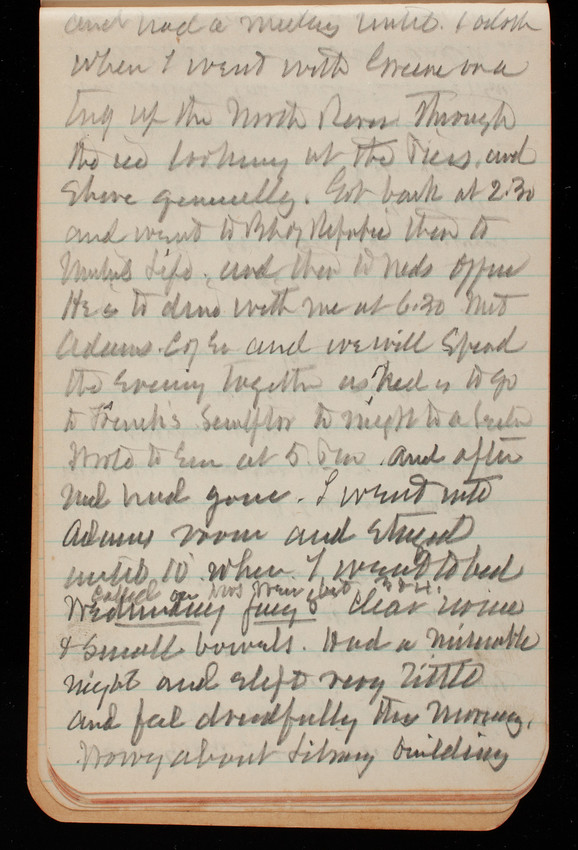 and had a meeting until 1 oclock
when I went with Greene on a
tug up the North River through
the ice looking at the Piers and
Shore generally. Got back at 2:30
and went to then to
Life and then to Neds office
He is to dine with me at 6:30 Met
Adams and we will spend
the Evening together as Ned is to go
to French's Sculptor to night to a
Wrote to Em at 5 Pm and after
Ned had gone. I went into
Adams room and stayed
until 10 when I went to bed
Called on Mrs but
Wednesday Jany 8 Clear
& Small bowels. Had a miserable
night and slept very little
and feel dreadfully this morning.
Worry about Library building